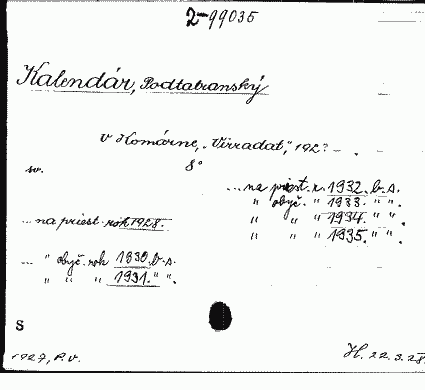 2-99035
Kalendár, Podtatranský
v Komárne, „Virradat", 192? – .
sv. 8°
...na priest. r. 1932. b. s.
" obyč. " 1933. " ".
" " " 1934. " ".
" " " 1935. " ".
...na priest. rok 1928.
... " obyč. rok 1930. b. s.
" " " 1931. " ".
S
1927, P. v.
H. 22.3.28